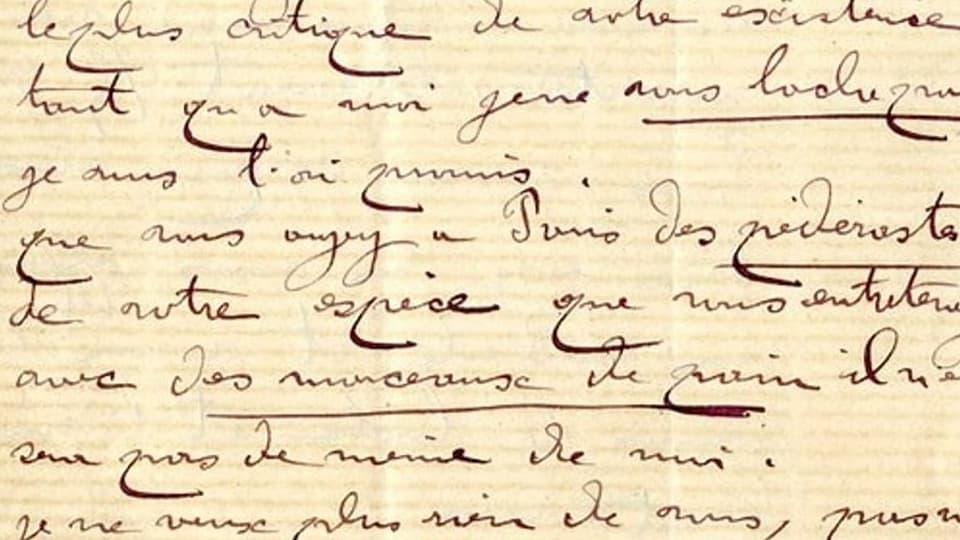 le plus critique de votre existence
tant qu'a moi je ne vous lache pas
je vous l'ai promis.
que vous ayey a Paris des pédérastes
de votre espèce que vous entretene
avec des morceaux de pain il n'e
sera pas de même de moi.
je ne veux plus rien de vous, pas